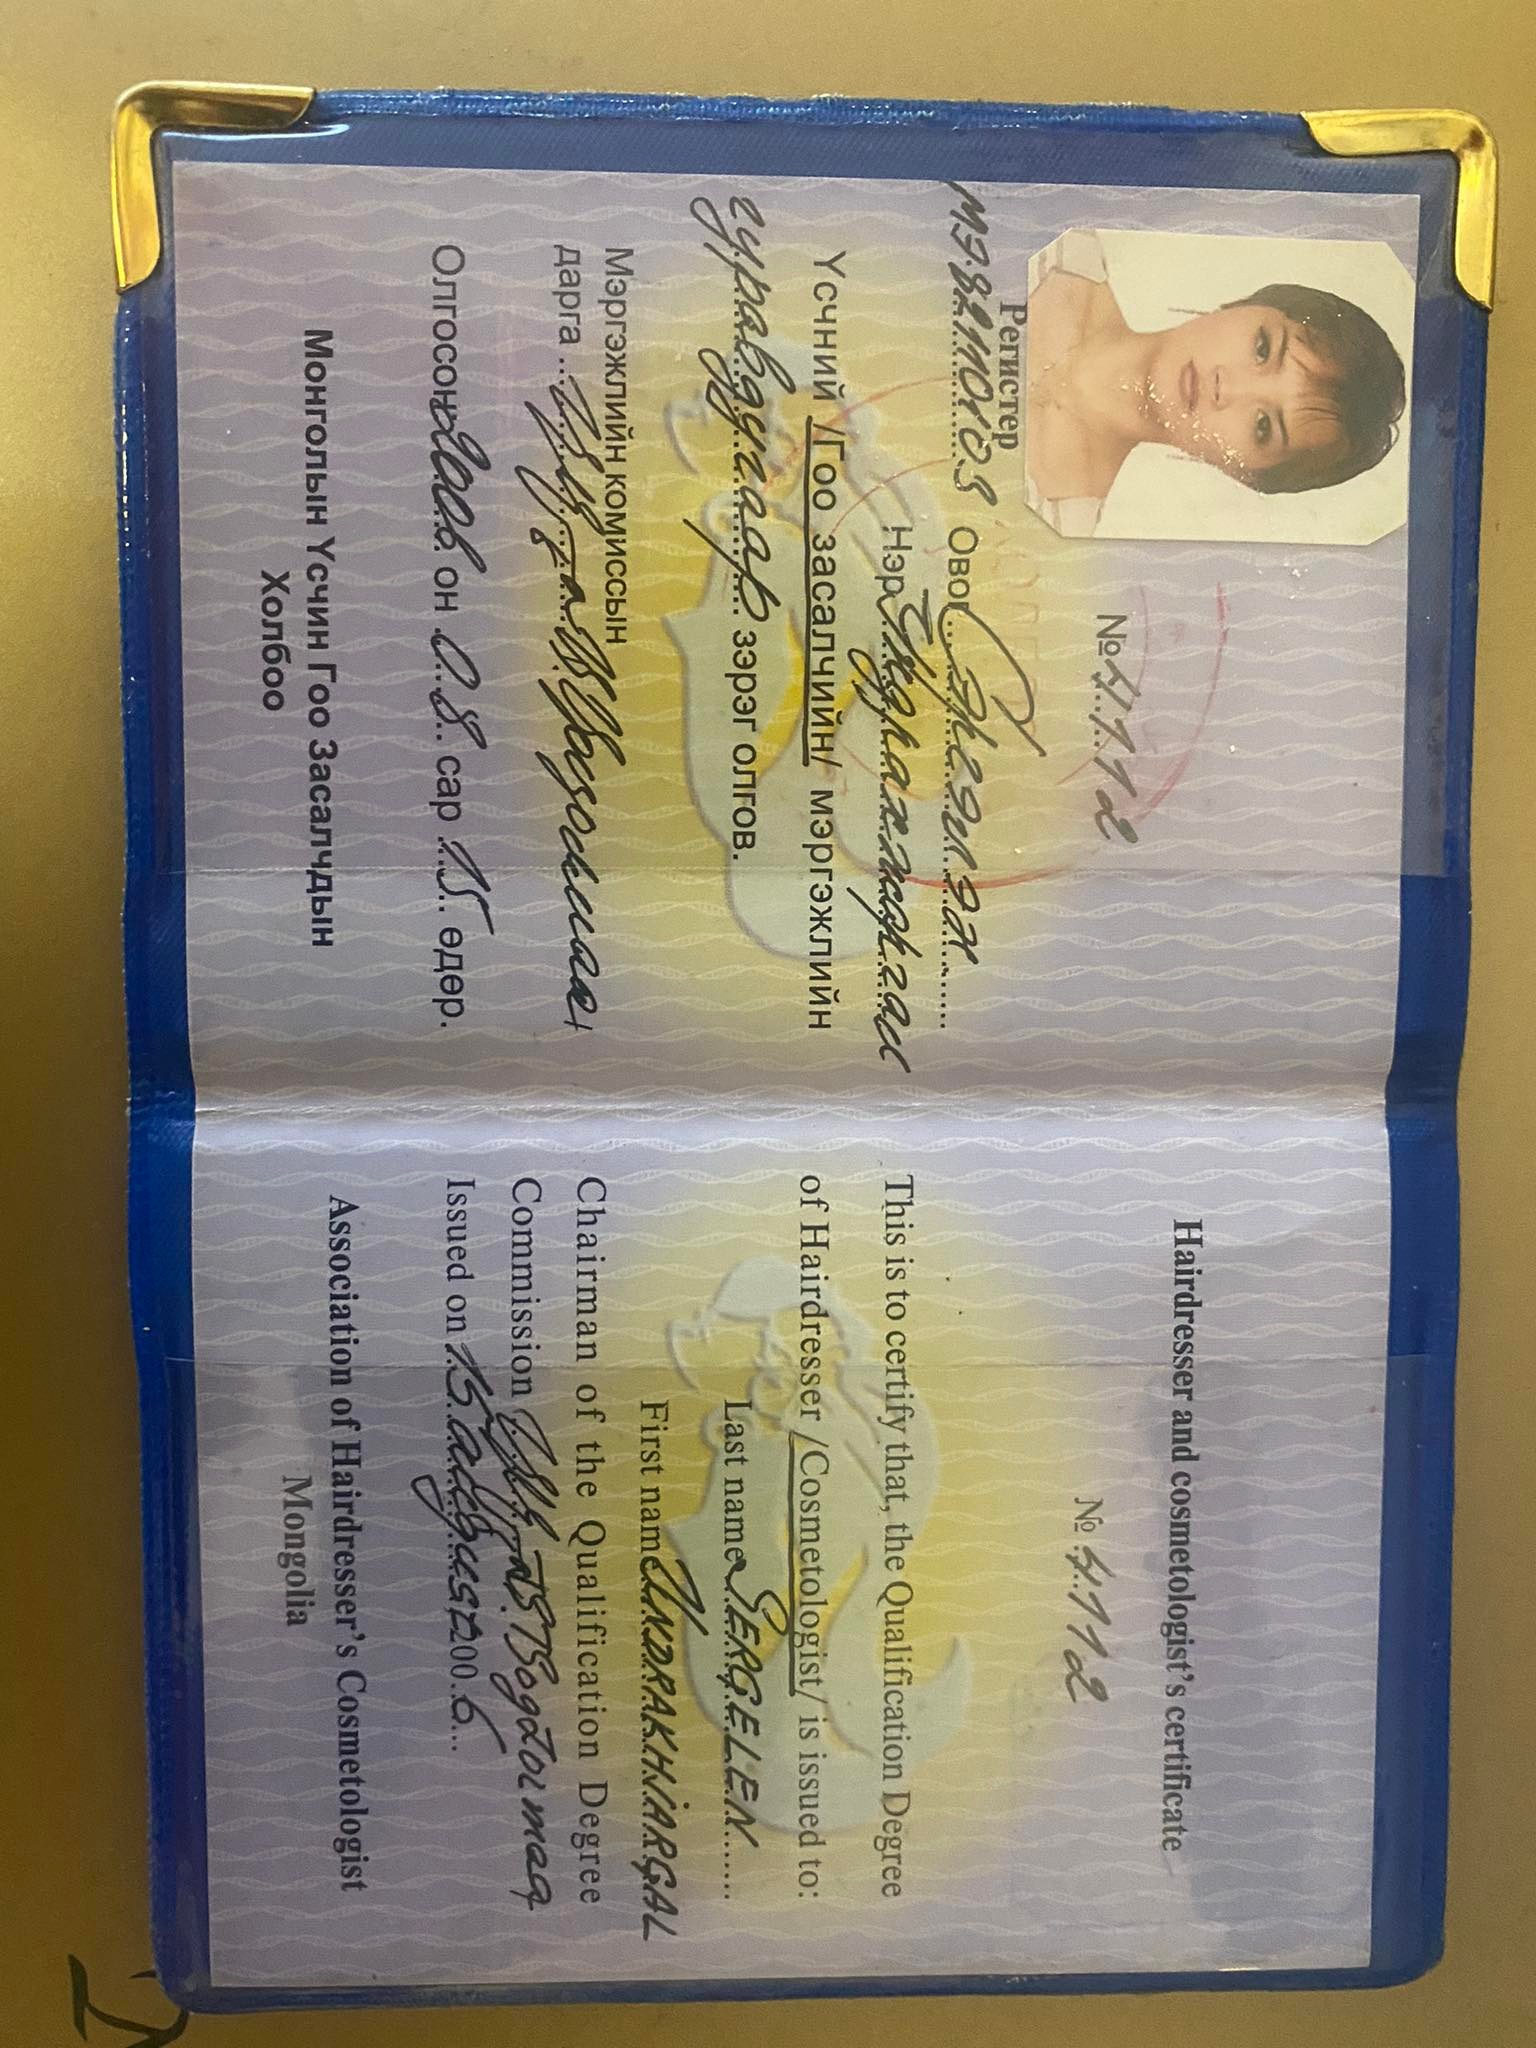 № 4112
Регистер
МЭ82110103
Овог Сэргэлэн
Нэр Ундрахжаргал
Үсчний /Гоо засалчийн/ мэргэжлийн
гуравдугаар зэрэг олгов.
Мэргэжлийн комиссын
дарга
Олгосон 2006 он 08 сар 15 өдөр.
Монголын Үсчин Гоо Засалчдын
Холбоо
Hairdresser and cosmetologist's certificate
№ 4112
This is to certify that, the Qualification Degree
of Hairdresser /Cosmetologist/ is issued to:
Last name SERGELEN
First name UNDRAKHJARGAL
Chairman of the Qualification Degree
Commission
Issued on 15 august 2006
Association of Hairdresser's Cosmetologist
Mongolia